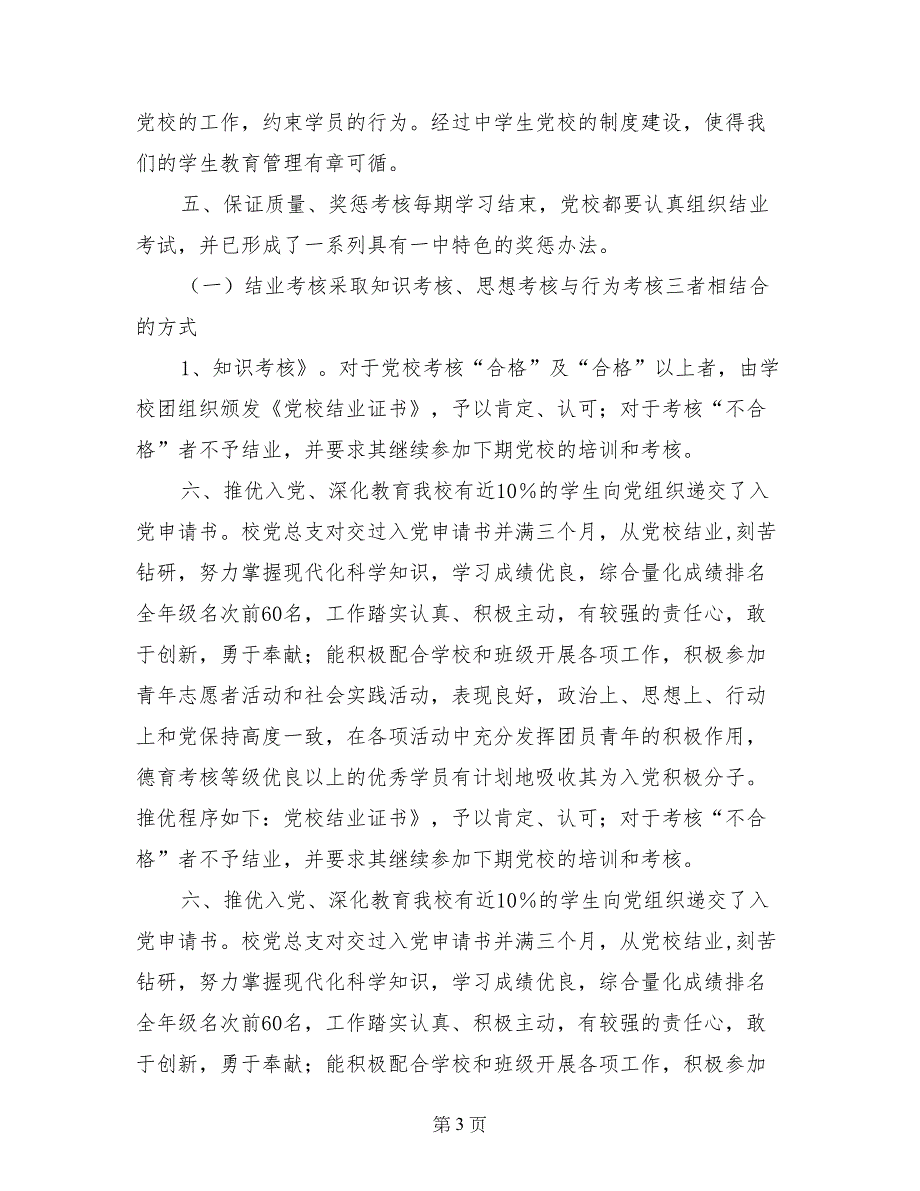 党校的工作，约束学员的行为。经过中学生党校的制度建设，使得我
们的学生教育管理有章可循。
五、保证质量、奖惩考核每期学习结束，党校都要认真组织结业
考试，并已形成了一系列具有一中特色的奖惩办法。
（一）结业考核采取知识考核、思想考核与行为考核三者相结合
的方式
1、知识考核》。对于党校考核“合格”及“合格”以上者，由学
校团组织颁发《党校结业证书》，予以肯定、认可；对于考核“不合
格”者不予结业，并要求其继续参加下期党校的培训和考核。
六、推优入党、深化教育我校有近10%的学生向党组织递交了入
党申请书。校党总支对交过入党申请书并满三个月，从党校结业,刻苦
钻研，努力掌握现代化科学知识，学习成绩优良，综合量化成绩排名
全年级名次前60名，工作踏实认真、积极主动，有较强的责任心，敢
于创新，勇于奉献；能积极配合学校和班级开展各项工作，积极参加
青年志愿者活动和社会实践活动，表现良好，政治上、思想上、行动
上和党保持高度一致，在各项活动中充分发挥团员青年的积极作用，
德育考核等级优良以上的优秀学员有计划地吸收其为入党积极分子。
推优程序如下：党校结业证书》，予以肯定、认可；对于考核“不合
格”者不予结业，并要求其继续参加下期党校的培训和考核。
六、推优入党、深化教育我校有近10%的学生向党组织递交了入
党申请书。校党总支对交过入党申请书并满三个月，从党校结业,刻苦
钻研，努力掌握现代化科学知识，学习成绩优良，综合量化成绩排名
全年级名次前60名，工作踏实认真、积极主动，有较强的责任心，敢
于创新，勇于奉献；能积极配合学校和班级开展各项工作，积极参加
第 3 页